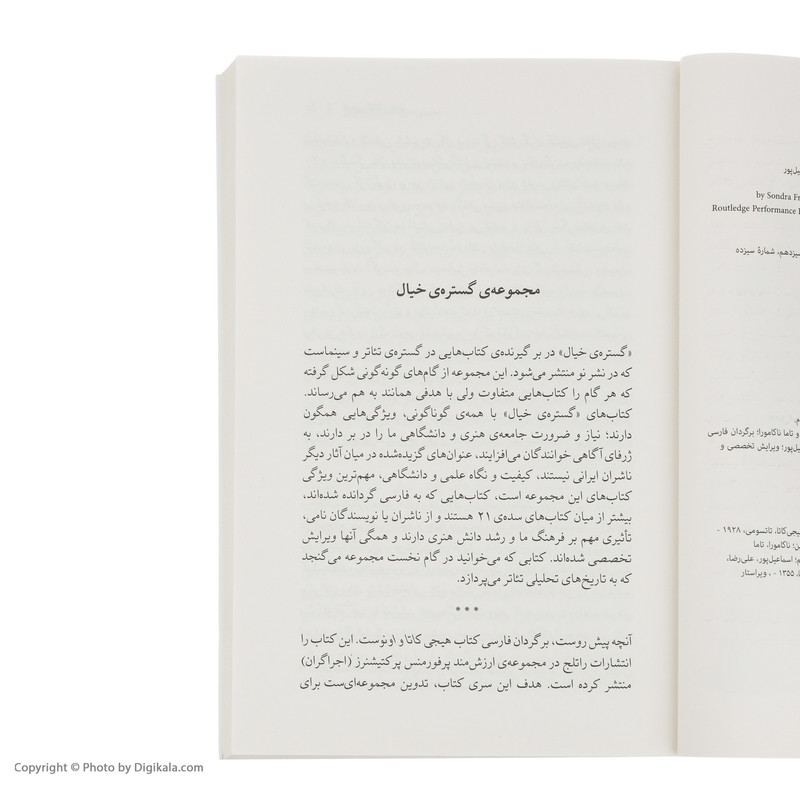 یل‌پور
by Sondra Fr
Routledge Performance P
سیزدهم، شمارهٔ سیزده
م.
و تاما ناکامورا؛ برگردان فارسی
یل‌پور؛ ویرایش تخصصی و
هیجی‌کاتا، تاتسومی، ۱۹۲۸ -
ن؛ ناکامورا، تاما
م؛ اسماعیل‌پور، علی‌رضا،
۱۳۵۵ - ، ویراستار
مجموعه‌ی گستره‌ی خیال
«گستره‌ی خیال» در بر گیرنده‌ی کتاب‌هایی در گستره‌ی تئاتر و سینماست
که در نشر نو منتشر می‌شود. این مجموعه از گام‌های گونه‌گونی شکل گرفته
که هر گام را کتاب‌هایی متفاوت ولی با هدفی همانند به هم می‌رساند.
کتاب‌های «گستره‌ی خیال» با همه‌ی گوناگونی، ویژگی‌هایی همگون
دارند؛ نیاز و ضرورت جامعه‌ی هنری و دانشگاهی ما را در بر دارند، به
ژرفای آگاهی خوانندگان می‌افزایند، عنوان‌های گزیده‌شده در میان آثار دیگر
ناشران ایرانی نیستند، کیفیت و نگاه علمی و دانشگاهی، مهم‌ترین ویژگی
کتاب‌های این مجموعه است، کتاب‌هایی که به فارسی گردانده شده‌اند،
بیشتر از میان کتاب‌های سده‌ی ۲۱ هستند و از ناشران یا نویسندگان نامی،
تأثیری مهم بر فرهنگ ما و رشد دانش هنری دارند و همگی آنها ویرایش
تخصصی شده‌اند. کتابی که می‌خوانید در گام نخست مجموعه می‌گنجد
که به تاریخ‌های تحلیلی تئاتر می‌پردازد.
•••
آنچه پیش روست، برگردان فارسی کتاب هیجی کاتا و اونوست. این کتاب را
انتشارات راتلج در مجموعه‌ی ارزش‌مند پرفورمنس پرکتیشنرز (اجراگران)
منتشر کرده است. هدف این سری کتاب، تدوین مجموعه‌ای‌ست برای
Copyright © Photo by Digikala.com